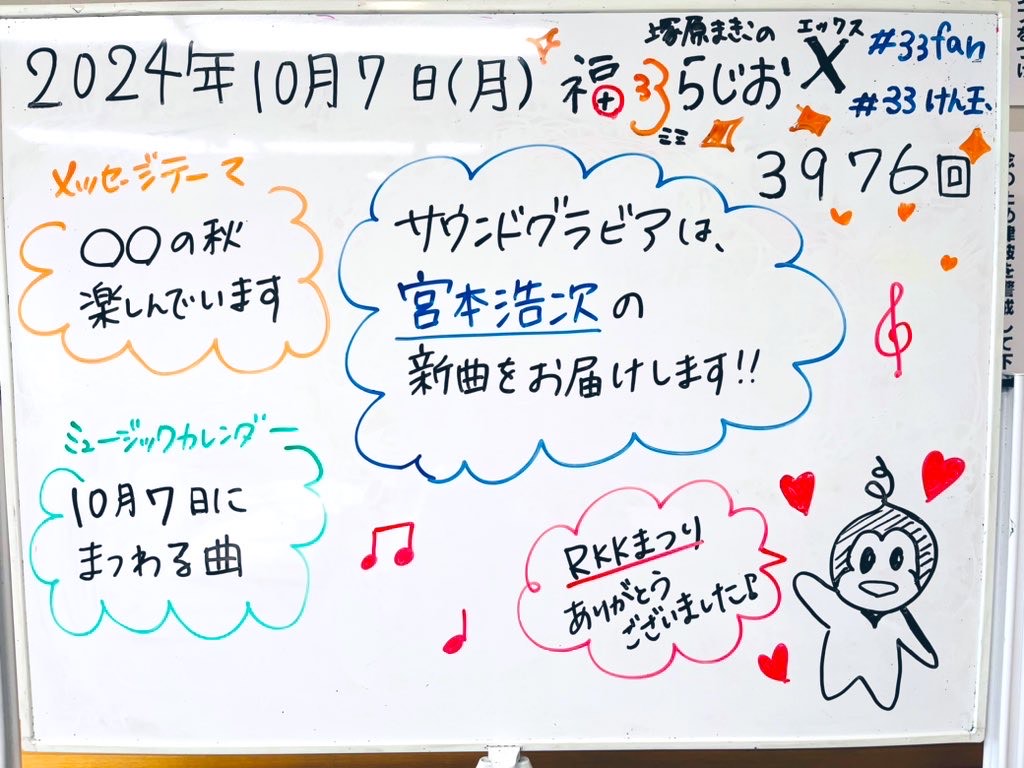 2024年10月7日(月)
塚原まきこの
福+33らじおX
エックス
ミミ
#33fan
#33けん玉
3976回
メッセージテーマ
○○の秋
楽しんでいます
サウンドグラビアは、
宮本浩次の
新曲をお届けします!!
ミュージックカレンダー
10月7日に
まつわる曲
RKKまつり
ありがとう
ございました♪